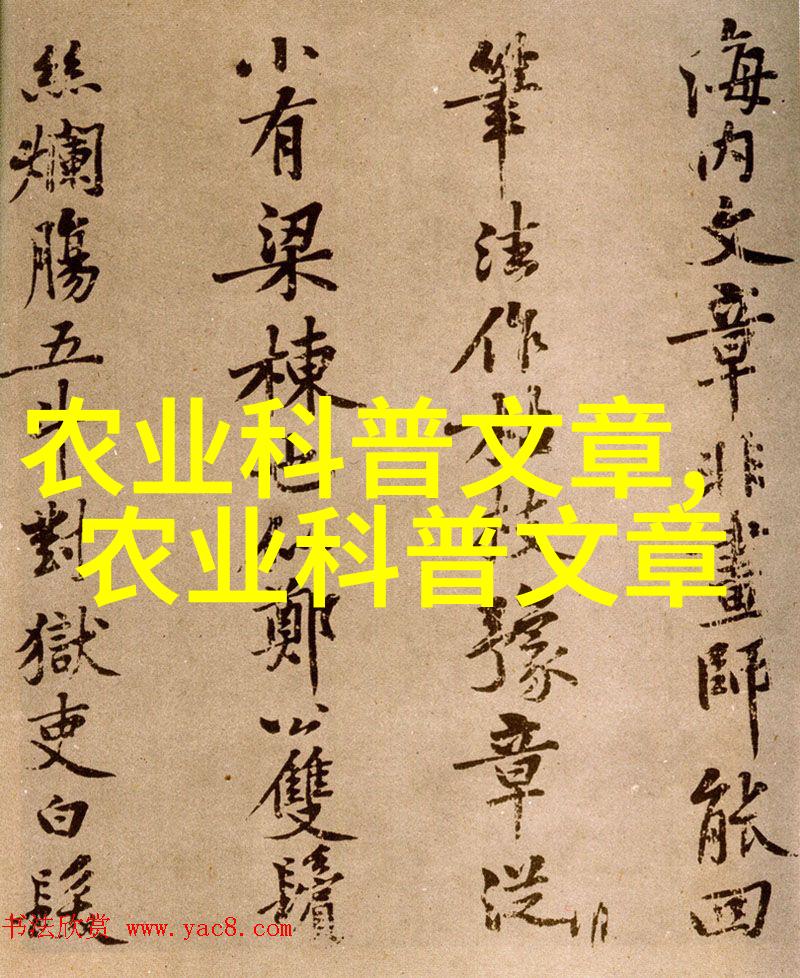 海内文章非畫師能回
筆法作枝豫章從
小有梁棟也鄭公雙鬢
絲爛腸五斗對獄吏白髮
农业科普文章,
农业科普文章
书法欣赏 www.yac8.com